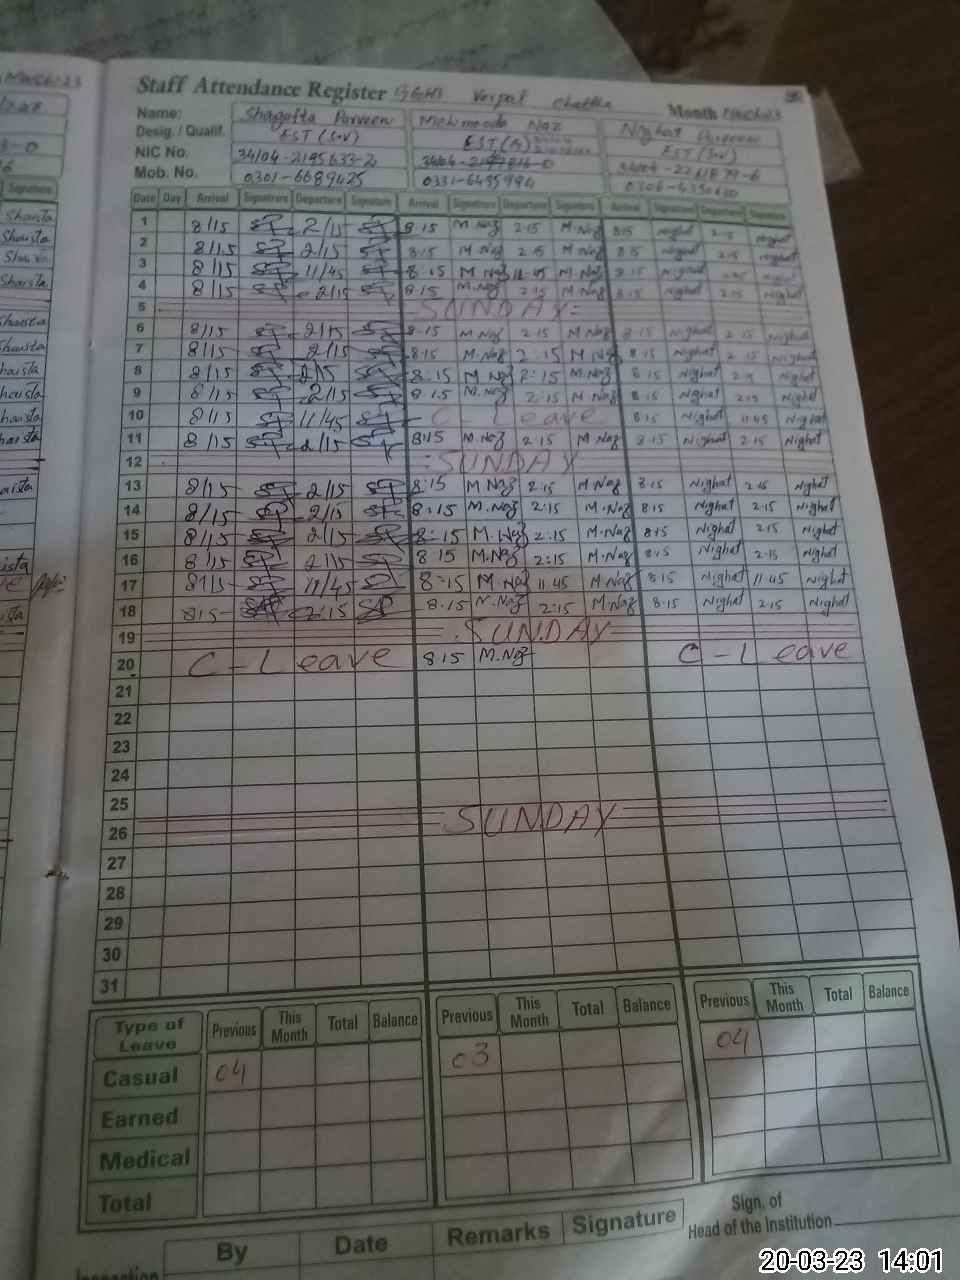 Staff Attendance Register GGHS Verpal Chattha Month March 23
Name: Shagufta Parveen Mehmooda Naz Nighat Parveen
Desig. / Qualif. EST (S.V) EST (G) EST (S.V)
NIC No. 34104-2195633-2
Mob. No. 0301-6689425 0331-6495994
Date Day Arrival Signature Departure Signature Arrival Signature Departure Signature Arrival Signature Departure Signature
1 8/15 2/15 8.15 M.Naz 2.15 M.Naz 8.15 Nighat 2.15 Nighat
2 8/15 2/15 8.15 M.Naz 2.15 M.Naz 8.15 Nighat 2.15 Nighat
3 8/15 11/45 8.15 M.Naz 11.45 M.Naz 8.15 Nighat Nighat
4 8/15 2/15 8.15 M.Naz 2.15 M.Naz 8.15 Nighat 2.15 Nighat
5 SUNDAY
6 8/15 2/15 8.15 M.Naz 2.15 M.Naz 8.15 Nighat 2.15 Nighat
7 8/15 2/15 8.15 M.Naz 2:15 M.Naz 8.15 Nighat 2.15 Nighat
8 8/15 2/15 8:15 M.Naz 2:15 M.Naz 8.15 Nighat 2.15 Nighat
9 8/15 2/15 8.15 M.Naz 2.15 M.Naz 8.15 Nighat 2.15 Nighat
10 8/15 11/45 C-Leave 8.15 Nighat 11.45 Nighat
11 8/15 2/15 8.15 M.Naz 2.15 M.Naz 8.15 Nighat 2.15 Nighat
12 SUNDAY
13 8/15 2/15 8:15 M.Naz 2:15 M.Naz 8.15 Nighat 2.15 Nighat
14 8/15 2/15 8:15 M.Naz 2:15 M.Naz 8.15 Nighat 2.15 Nighat
15 8/15 2/15 8:15 M.Naz 2:15 M.Naz 8.15 Nighat 2.15 Nighat
16 8/15 2/15 8 15 M.Naz 2:15 M.Naz 8.15 Nighat 2.15 Nighat
17 8/15 11/45 8:15 M.Naz 11.45 M.Naz 8.15 Nighat 11.45 Nighat
18 8/15 2/15 8.15 M.Naz 2:15 M.Naz 8.15 Nighat 2.15 Nighat
19 SUNDAY
20 C-Leave 8 15 M.Naz C-Leave
21
22
23
24
25
26 SUNDAY
27
28
29
30
31
Type of Leave Previous This Month Total Balance Previous This Month Total Balance Previous This Month Total Balance
Casual 04 03 04
Earned
Medical
Total
By Date Remarks Signature
Sign. of
Head of the Institution
Inspection
20-03-23 14:01